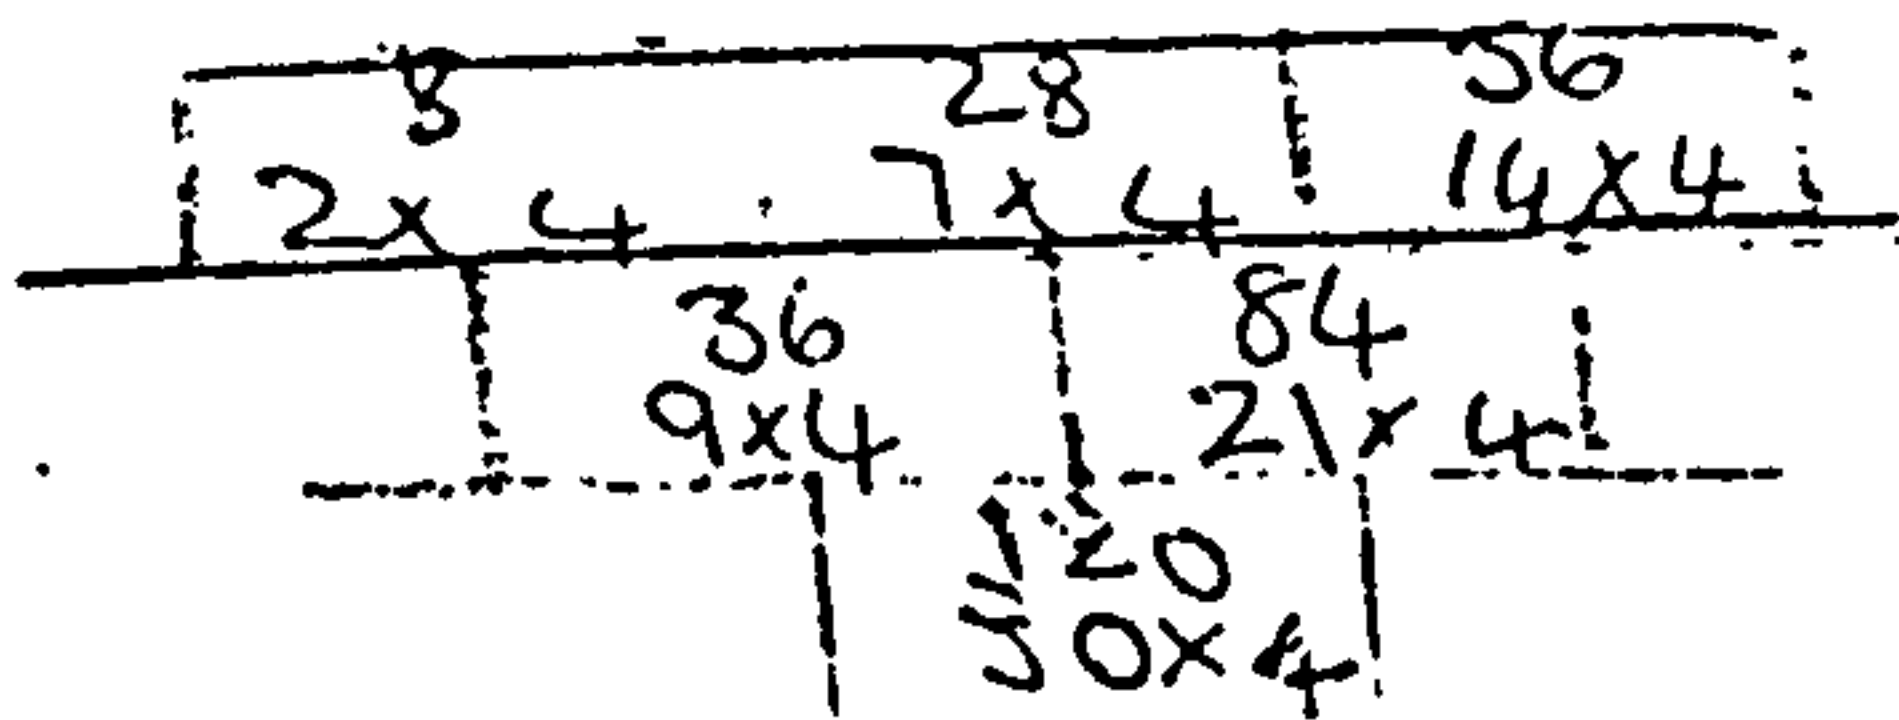 8 28 56
2 x 4 7 x 4 14 x 4
36 84
9 x 4 21 x 4
120
30 x 4